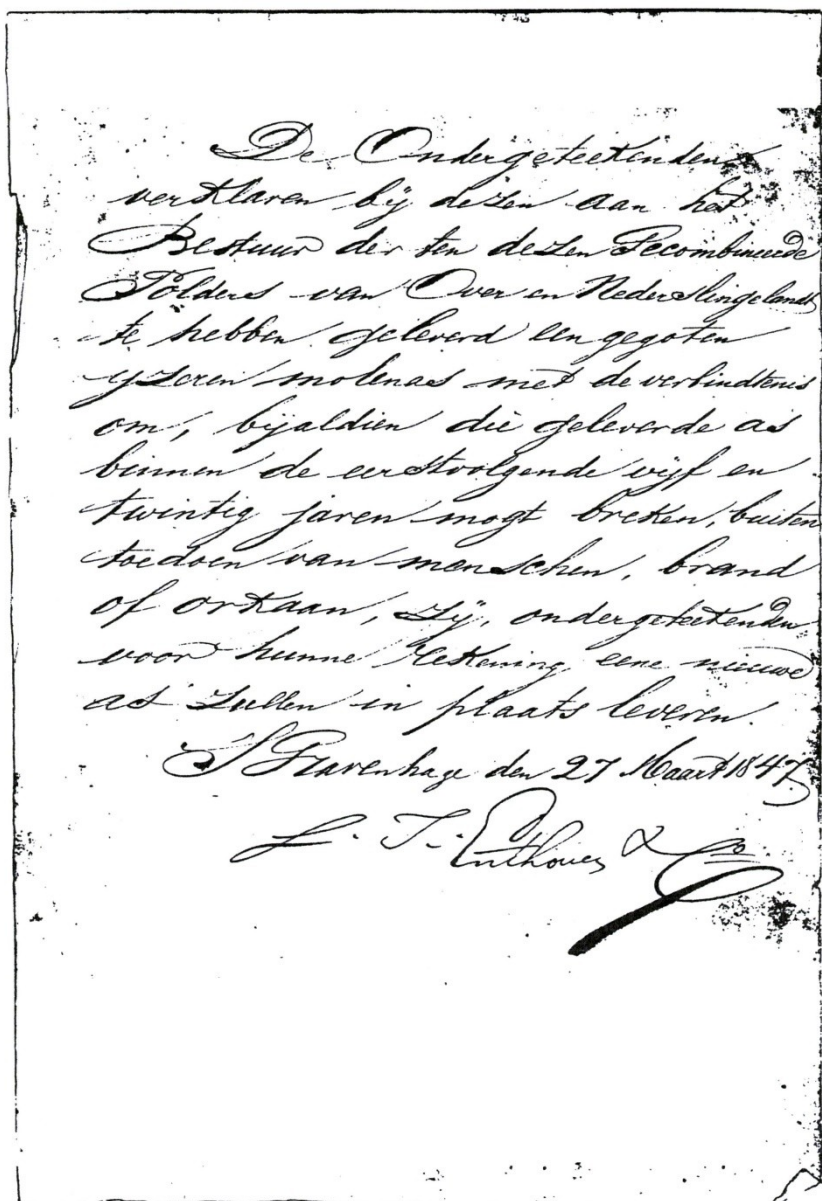 De Ondergeteekenden
verklaren bij dezen aan het
Bestuur der ten dezen Gecombineerde
Polders van Over en Neder Slingelandt
te hebben geleverd een gegoten
yzeren molenas met de verbindtenis
om, bijaldien die geleverde as
binnen de eerstvolgende vijf en
twintig jaren mogt breken, buiten
toedoen van menschen, brand
of orkaan, zij, ondergeteekenden
voor hunne rekening eene nieuwe
as zullen in plaats leveren.
S'Gravenhage den 27 Maart 1847
L. I. Enthoven & Co.